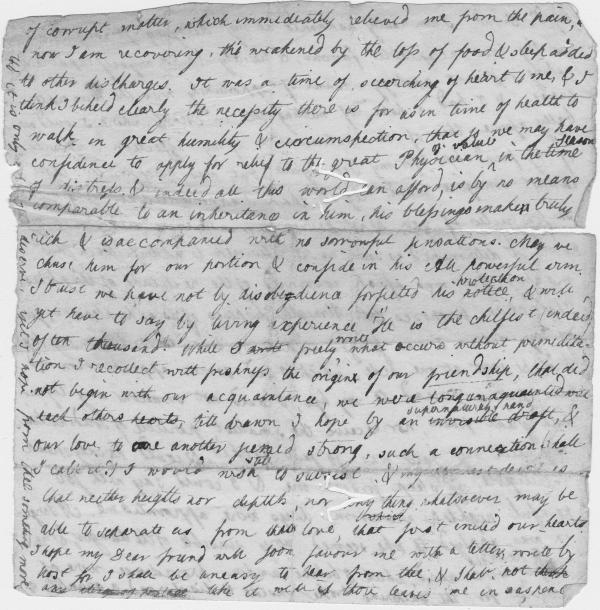 of corrupt matter, which immediately relieved me from the pain,
now I am recovering, tho weakened by the loss of food & sleep added
to other discharges. It was a time of searching of heart to me, & I
think I beheld clearly the necessity there is for us in time of health to
walk in great humility & circumspection, that so we may have
confidence to apply for relief to the great Physician of value in the time season
of distress, & indeed all this world can afford, is by no means
comparable to an inheritance in him, his blessings makes truly
rich & is accompanied with no sorrowful sensations. May we
chuse him for our portion & confide in his All powerful arm.
I trust we have not by disobedience forfeited his notice, protection & will
yet have to say by living experience "He is the chiefest (indeed) of
ten thousand." While I write write freely what occurs without premedita-
tion I recollect with freshness the origin of our friendship, that did
not begin with our acquaintance, we were long unacquainted with
each others hearts, till drawn I hope by an invisible supernatural hand draft, &
our love to one another seemed strong, such a connection shall
I call it? I would wish still to subsist & my earnest desire is
that neither heights nor depths, nor any thing whatsoever may be
able to separate us from that love, that first united our hearts
I hope my Dear friend will soon favour me with a letter, write by
post for I shall be uneasy to hear from thee, & shall not think
any thing of postage take it well if thou leaves me in suspence
hope from thee something more